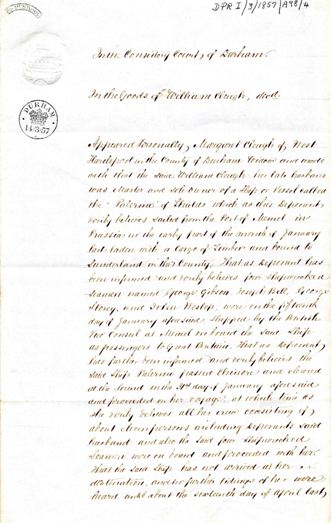 DPR I/3/1857/A98/4
In the Consistory Court of Durham.
In the Goods of William Clough, decd
DURHAM
14·3·57
Appeared Personally, Margaret Clough of West
Hartlepool in the County of Durham Widow and made
oath that the said William Clough her late husband
was Master and sole owner of a Ship or Vessel called
the "Palermo" of Shields which as this deponent
verily believes sailed from the Port of Memel in
Prussia in the early part of the month of January
last laden with a Cargo of Timber and bound to
Sunderland in this County. That as deponent has
been informed and verily believes four Shipwrecked
Seamen named George Gibson, Joseph Bell, George
and John were on the
day of January aforesaid shipped by the British
Vice Consul at Memel on board the said Ship
as passengers to Great Britain. That as deponent
has further been informed and verily believes the
said Ship Palermo passed Elsinore and cleared
at the Sound on the day of January aforesaid
and proceeded on her voyage at which time as
she verily believes all her crew consisting of
about eleven persons including deponents said
husband and also the said four Shipwrecked
Seamen were on board and proceeded with her.
That the said Ship has not arrived at her
destination, and no further tidings of her were
heard until about the sixteenth day of April last,